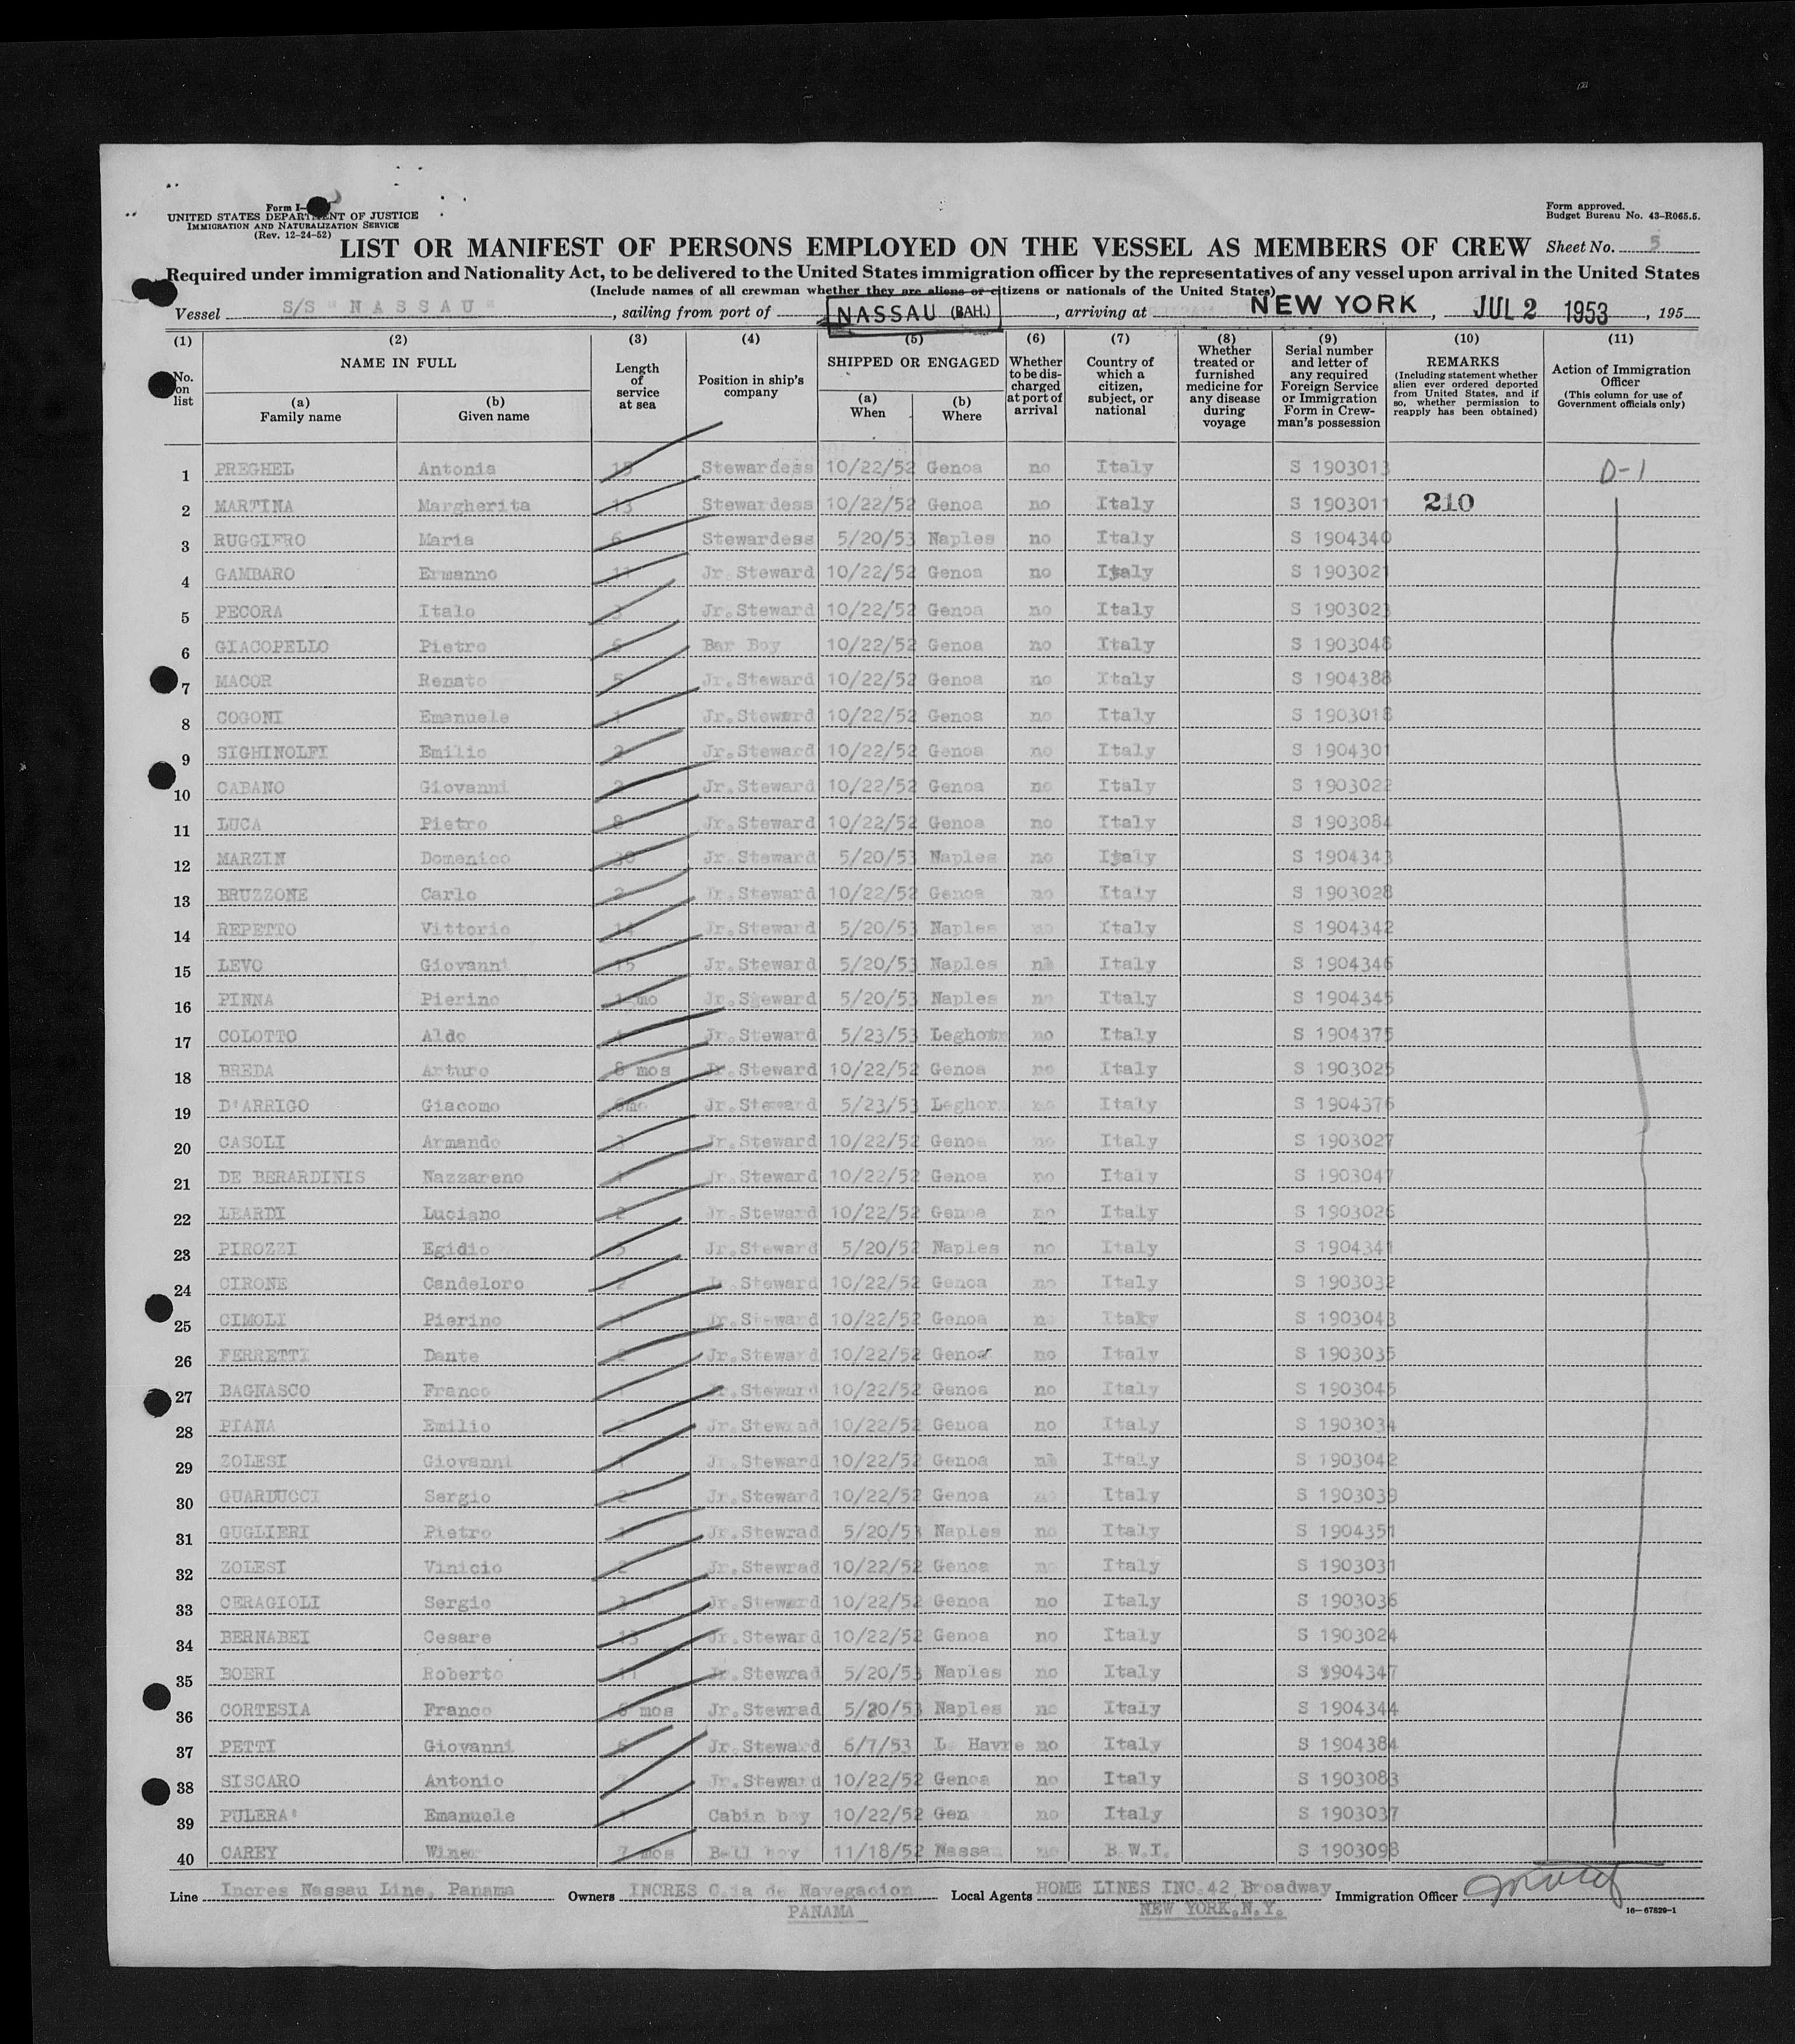 Form I-
UNITED STATES DEPARTMENT OF JUSTICE
IMMIGRATION AND NATURALIZATION SERVICE
(Rev. 12-24-52)
Form approved.
Budget Bureau No. 43-R065.5.
LIST OR MANIFEST OF PERSONS EMPLOYED ON THE VESSEL AS MEMBERS OF CREW Sheet No. 5
Required under immigration and Nationality Act, to be delivered to the United States immigration officer by the representatives of any vessel upon arrival in the United States
(Include names of all crewman whether they are aliens or citizens or nationals of the United States)
Vessel S/S "NASSAU", sailing from port of NASSAU (BAH.), arriving at NEW YORK, JUL 2 1953, 195
(1) No. on list
(2) NAME IN FULL (a) Family name (b) Given name
(3) Length of service at sea
(4) Position in ship's company
(5) SHIPPED OR ENGAGED (a) When (b) Where
(6) Whether to be discharged at port of arrival
(7) Country of which a citizen, subject, or national
(8) Whether treated or furnished medicine for any disease during voyage
(9) Serial number and letter of any required Foreign Service or Immigration Form in Crewman's possession
(10) REMARKS (Including statement whether alien ever ordered deported from United States, and if so, whether permission to reapply has been obtained)
(11) Action of Immigration Officer (This column for use of Government officials only)
1 PREGHEL Antonia 15 Stewardess 10/22/52 Genoa no Italy S 1903013 D-1
2 MARTINA Margherita 13 Stewardess 10/22/52 Genoa no Italy S 1903011 210
3 RUGGIERO Maria 6 Stewardess 5/20/53 Naples no Italy S 1904340
4 GAMBARO Ermanno 11 Jr.Steward 10/22/52 Genoa no Italy S 1903021
5 PECORA Italo 3 Jr.Steward 10/22/52 Genoa no Italy S 1903023
6 GIACOPELLO Pietro 6 Bar Boy 10/22/52 Genoa no Italy S 1903048
7 MACOR Renato 5 Jr.Steward 10/22/52 Genoa no Italy S 1904388
8 COGONI Emanuele 1 Jr.Steward 10/22/52 Genoa no Italy S 1903018
9 SIGHINOLFI Emilio 2 Jr.Steward 10/22/52 Genoa no Italy S 1904301
10 CABANO Giovanni Jr.Steward 10/22/52 Genoa no Italy S 1903022
11 LUCA Pietro 8 Jr.Steward 10/22/52 Genoa no Italy S 1903084
12 MARZIN Domenico 30 Jr.Steward 5/20/53 Naples no Italy S 1904343
13 BRUZZONE Carlo 2 Jr.Steward 10/22/52 Genoa no Italy S 1903028
14 REPETTO Vittorio 14 Jr.Steward 5/20/53 Naples no Italy S 1904342
15 LEVO Giovanni 15 Jr.Steward 5/20/53 Naples no Italy S 1904346
16 PINNA Pierino 1 mo Jr.Steward 5/20/53 Naples no Italy S 1904345
17 COLOTTO Aldo Jr.Steward 5/23/53 Leghorn no Italy S 1904375
18 BREDA Arturo 8 mos Jr.Steward 10/22/52 Genoa no Italy S 1903025
19 D'ARRIGO Giacomo 6mo Jr.Steward 5/23/53 Leghor no Italy S 1904376
20 CASOLI Armando Jr.Steward 10/22/52 Genoa no Italy S 1903027
21 DE BERARDINIS Nazzareno Jr.Steward 10/22/52 Genoa no Italy S 1903047
22 LEARDI Luciano 2 Jr.Steward 10/22/52 Genoa no Italy S 1903026
23 PIROZZI Egidio 5 Jr.Steward 5/20/52 Naples no Italy S 1904341
24 CIRONE Candeloro 2 Jr.Steward 10/22/52 Genoa no Italy S 1903032
25 CIMOLI Pierino 1 Jr.Steward 10/22/52 Genoa n Italy S 1903043
26 FERRETTI Dante Jr.Steward 10/22/52 Genoa no Italy S 1903035
27 BAGNASCO Franco 1 Jr.Steward 10/22/52 Genoa no Italy S 1903045
28 PIANA Emilio 2 Jr.Stewrad 10/22/52 Genoa no Italy S 1903034
29 ZOLESI Giovanni 1 Jr.Steward 10/22/52 Genoa no Italy S 1903042
30 GUARDUCCI Sergio 2 Jr.Steward 10/22/52 Genoa no Italy S 1903039
31 GUGLIERI Pietro Jr.Stewrad 5/20/53 Naples no Italy S 1904351
32 ZOLESI Vinicio 2 Jr.Stewrad 10/22/52 Genoa no Italy S 1903031
33 CERAGIOLI Sergio Jr.Steward 10/22/52 Genoa no Italy S 1903036
34 BERNABEI Cesare 13 Jr.Steward 10/22/52 Genoa no Italy S 1903024
35 BOERI Roberto 11 Jr.Stewrad 5/20/53 Naples no Italy S 1904347
36 CORTESIA Franco 6 mos Jr.Stewrad 5/20/53 Naples no Italy S 1904344
37 PETTI Giovanni 6 Jr.Steward 6/7/53 L Havre no Italy S 1904384
38 SISCARO Antonio Jr.Steward 10/22/52 Genoa no Italy S 1903083
39 PULERA' Emanuele 1 Cabin boy 10/22/52 Gen no Italy S 1903037
40 CAREY 7 mos Bell boy 11/18/52 Nassa no B.W.I. S 1903098
Line Incres Nassau Line, Panama Owners INCRES C.ia de Navegacion Local Agents HOME LINES INC.42 Broadway Immigration Officer
PANAMA NEW YORK.N.Y.
16—67829-1